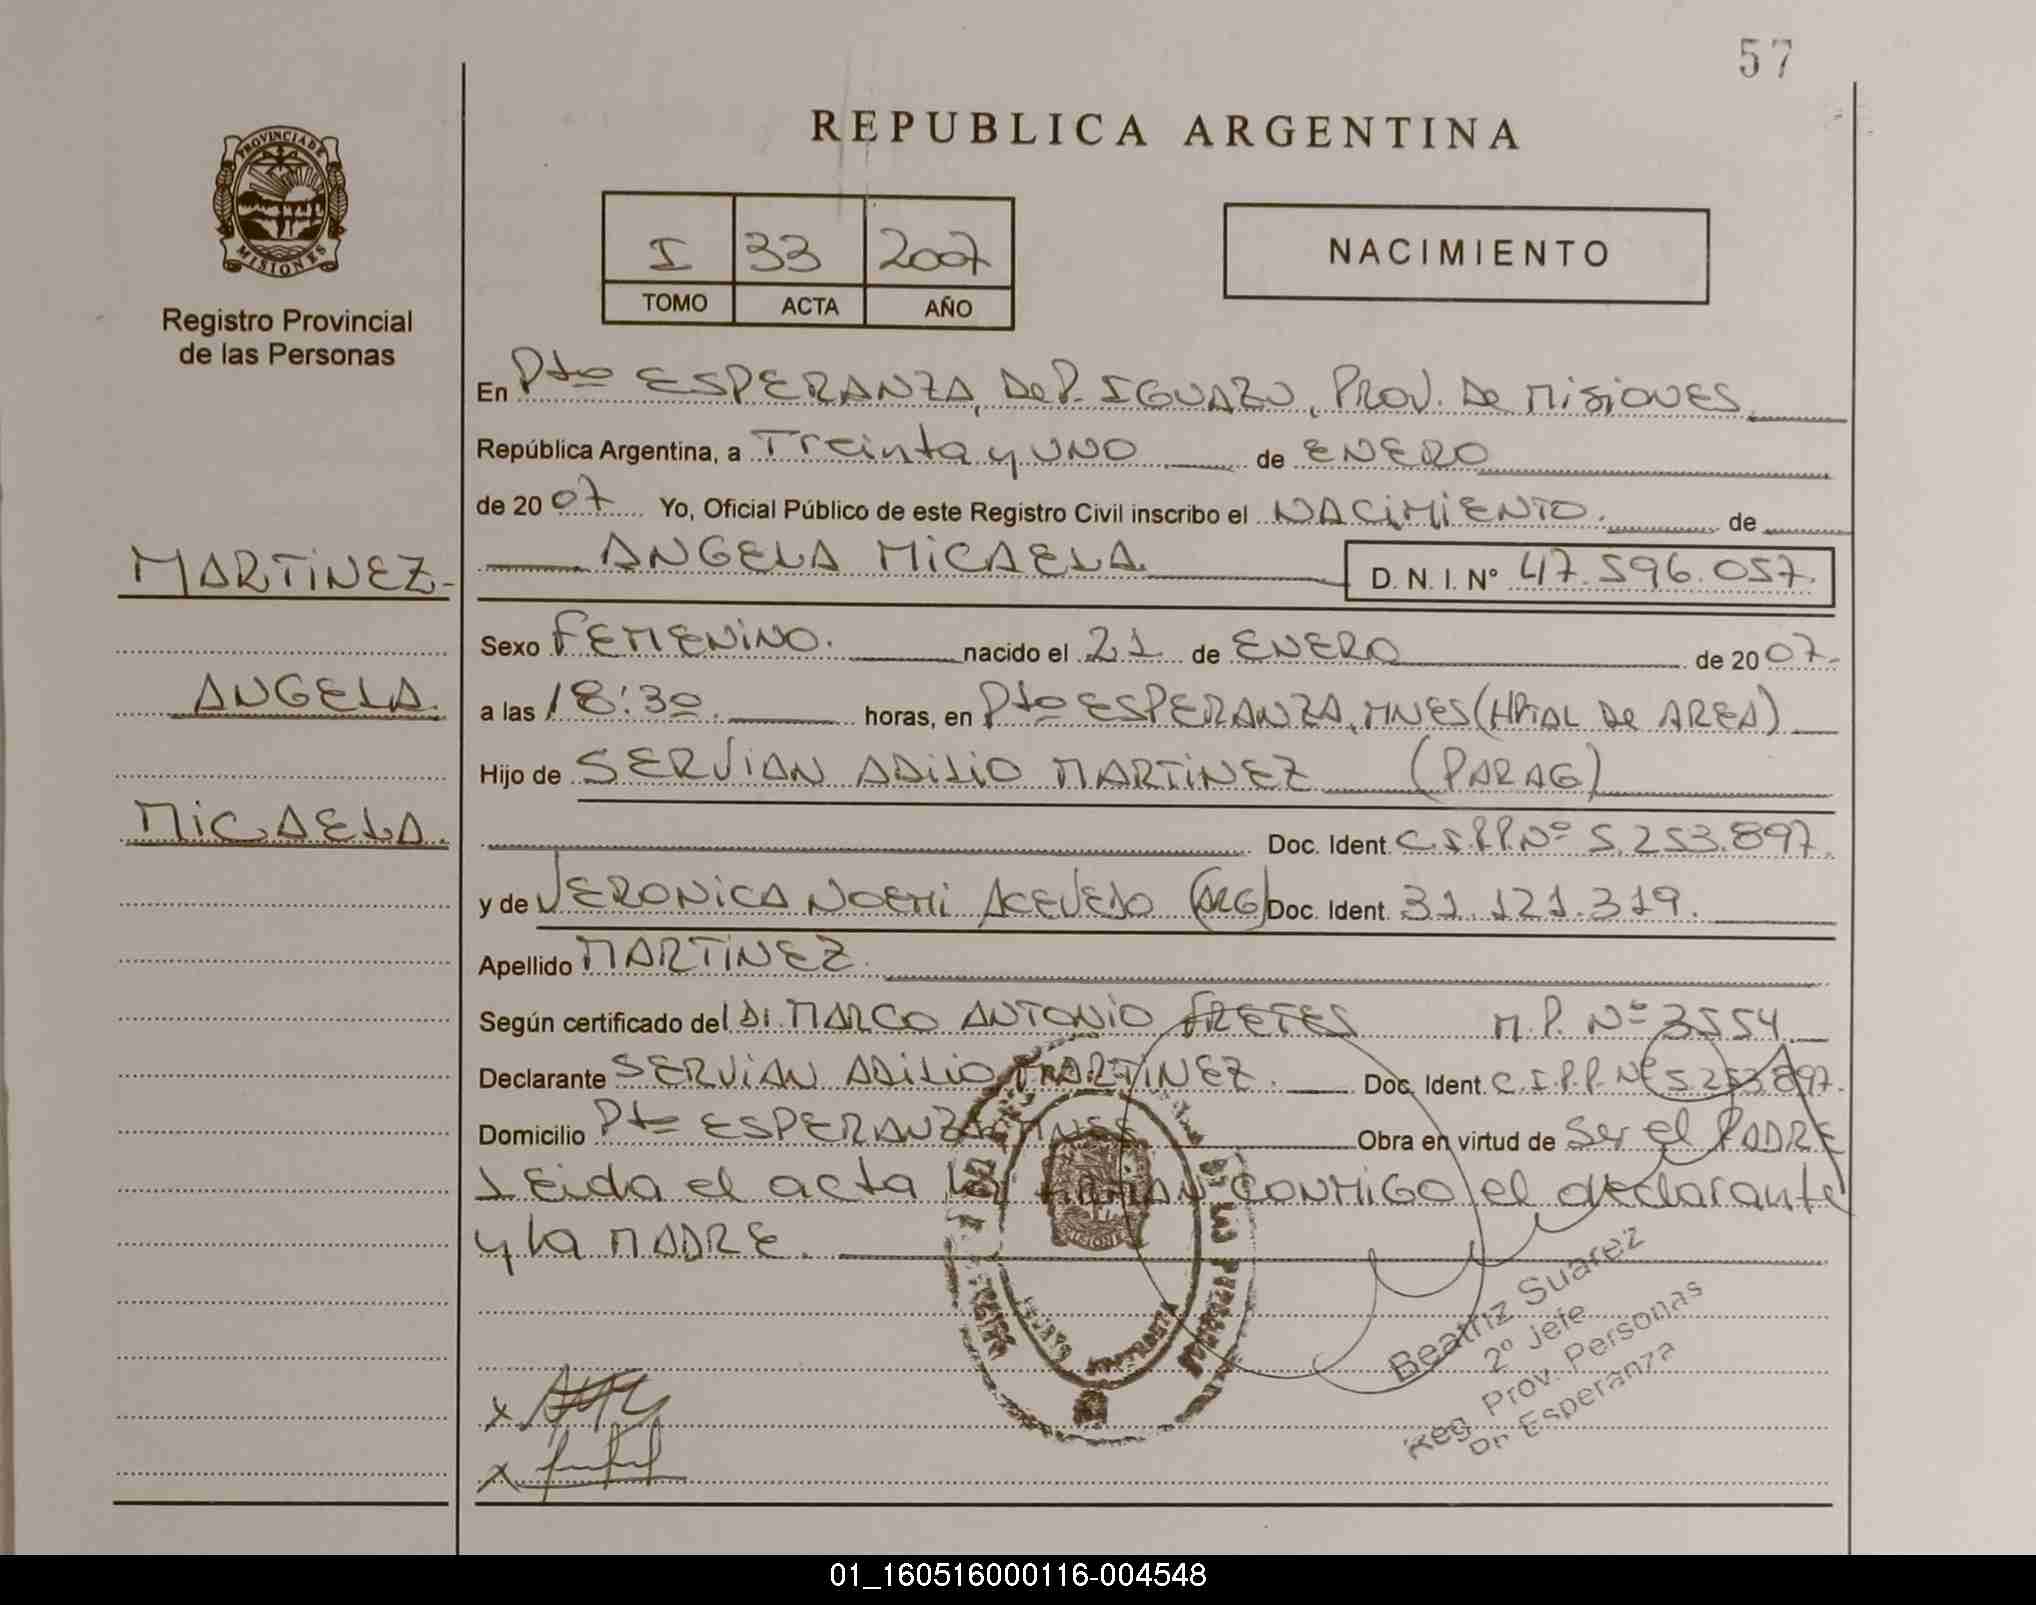 57
REPUBLICA ARGENTINA
PROVINCIA DE
MISIONES
Registro Provincial
de las Personas
I 33 2007
TOMO ACTA AÑO
NACIMIENTO
En Pto ESPERANZA, DeP. IGUAZU, PROV. De MISIONES
República Argentina, a Treinta y UNO de ENERO
de 2007 Yo, Oficial Público de este Registro Civil inscribo el NACIMIENTO. de
MARTINEZ
ANGELA MICAELA D. N. I. N° 47.596.057.
Sexo FEMENINO. nacido el 21 de ENERO de 2007.
ANGELA
a las 18:30 horas, en Pto ESPERANZA, MNES (HPTAL De AREA)
Hijo de SERVIAN ADILIO MARTINEZ (PARAG)
MICAELA.
Doc. Ident. C.I.P.P.Nº 5.253.897.
y de VERONICA NOEMI ACEVEDO (ARG) Doc. Ident. 31.121.319.
Apellido MARTINEZ.
Según certificado del MARCO ANTONIO FRETES M.P. Nº 3554
Declarante SERVIAN ADILIO MARTINEZ. Doc. Ident. C.I.P.P. Nº 5.253.897.
Domicilio Pto ESPERANZA MNES Obra en virtud de Ser el PADRE
Leida el acta la FIRMAN CONMIGO el declarante
y la MADRE.
Beatriz Suarez
2º Jefe
Reg. Prov. Personas
Esperanza
x
x
01_160516000116-004548